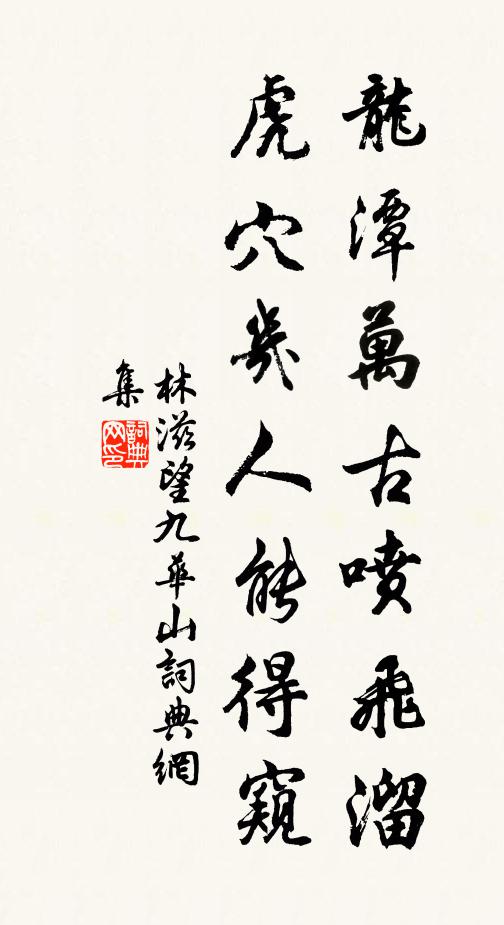 龍潭萬古噴飛溜
虎穴幾人能得窺
林滋望九華山詞典網
集
詞典
网印